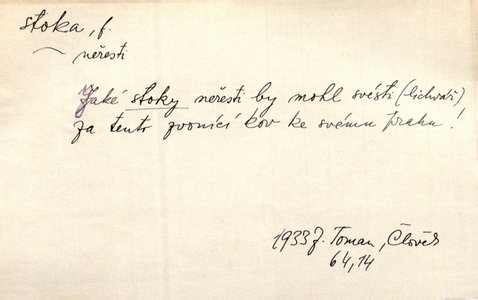 stoka, f.
~ neřesti
Jaké stoky neřesti by mohl svésti (lichvář)
za tento zvonící kov ke svému prahu!
1933 J. Toman, Člověk
64,14